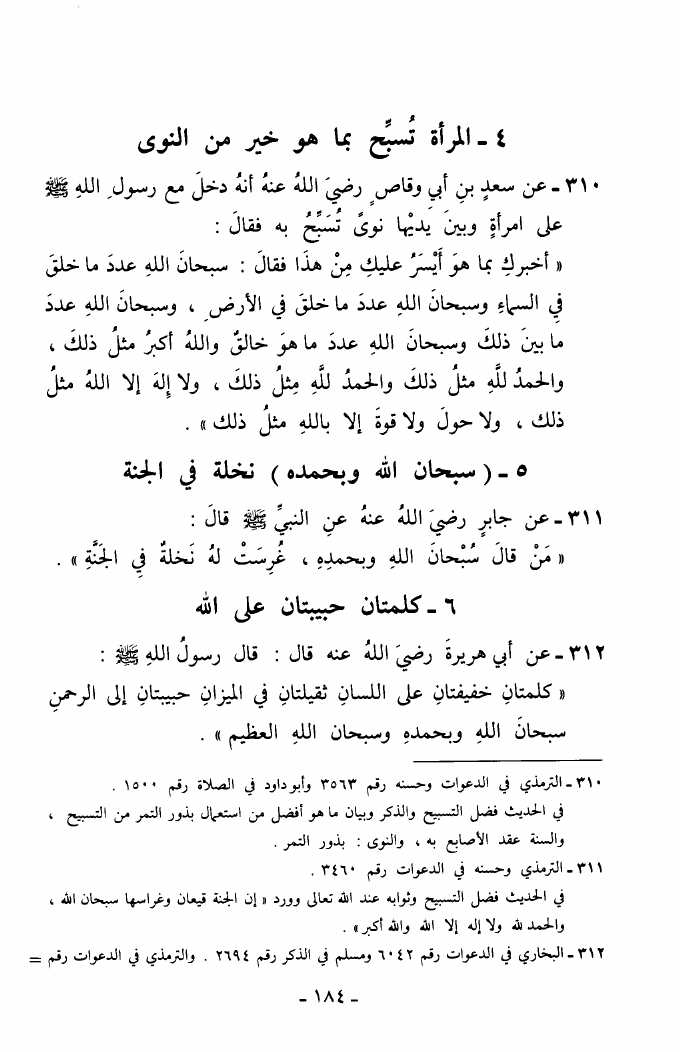 ٤ - المرأة تُسبِّح بما هو خير من النوى
٣١٠ - عن سعدٍ بنِ أبي وقاصٍ رضيَ اللهُ عنهُ أنهُ دخلَ مع رسولِ اللهِ ﷺ
على امرأةٍ وبينَ يديْها نوىً تُسَبِّحُ به فقالَ :
« أخبركِ بما هوَ أَيْسَرُ عليكِ مِنْ هذَا فقالَ : سبحانَ اللهِ عددَ ما خلقَ
في السماءِ وسبحانَ اللهِ عددَ ما خلقَ في الأرضِ ، وسبحانَ اللهِ عددَ
ما بينَ ذلكَ وسبحانَ اللهِ عددَ ما هوَ خالقٌ واللهُ أكبرُ مثلُ ذلكَ ،
والحمدُ للَّهِ مثلُ ذلكَ والحمدُ للَّهِ مِثلُ ذلكَ ، ولا إلهَ إلا اللهُ مثلُ
ذلك ، ولا حولَ ولا قوةَ إلا باللهِ مثلُ ذلك » .
٥ - ( سبحان الله وبحمده ) نخلة في الجنة
٣١١ - عن جابرٍ رضيَ اللهُ عنهُ عنِ النبيِّ ﷺ قالَ :
« مَنْ قالَ سُبْحانَ اللهِ وبحمدِهِ ، غُرِسَتْ لهُ نَخلةٌ فِي الجَنَّةِ » .
٦ - كلمتان حبيبتان على الله
٣١٢ - عن أبي هريرةَ رضيَ اللهُ عنه قال : قال رسولُ اللهِ ﷺ :
« كلمتانِ خفيفتانِ على اللسانِ ثقيلتانِ في الميزانِ حبيبتانِ إلى الرحمنِ
سبحانَ اللهِ وبحمدهِ وسبحان اللهِ العظيم » .
٣١٠ - الترمذي في الدعوات وحسنه رقم ٣٥٦٣ وأبو داود في الصلاة رقم ١٥٠٠ .
في الحديث فضل التسبيح والذكر وبيان ما هو أفضل من استعمال بذور التمر من التسبيح ،
والسنة عقد الأصابع به ، والنوى : بذور التمر .
٣١١ - الترمذي وحسنه في الدعوات رقم ٣٤٦٠ .
في الحديث فضل التسبيح وثوابه عند الله تعالى وورد « إن الجنة قيعان وغراسها سبحان الله ،
والحمد لله ولا إله إلا الله والله أكبر » .
٣١٢ - البخاري في الدعوات رقم ٦٠٤٢ ومسلم في الذكر رقم ٢٦٩٤ . والترمذي في الدعوات رقم =
- ١٨٤ -